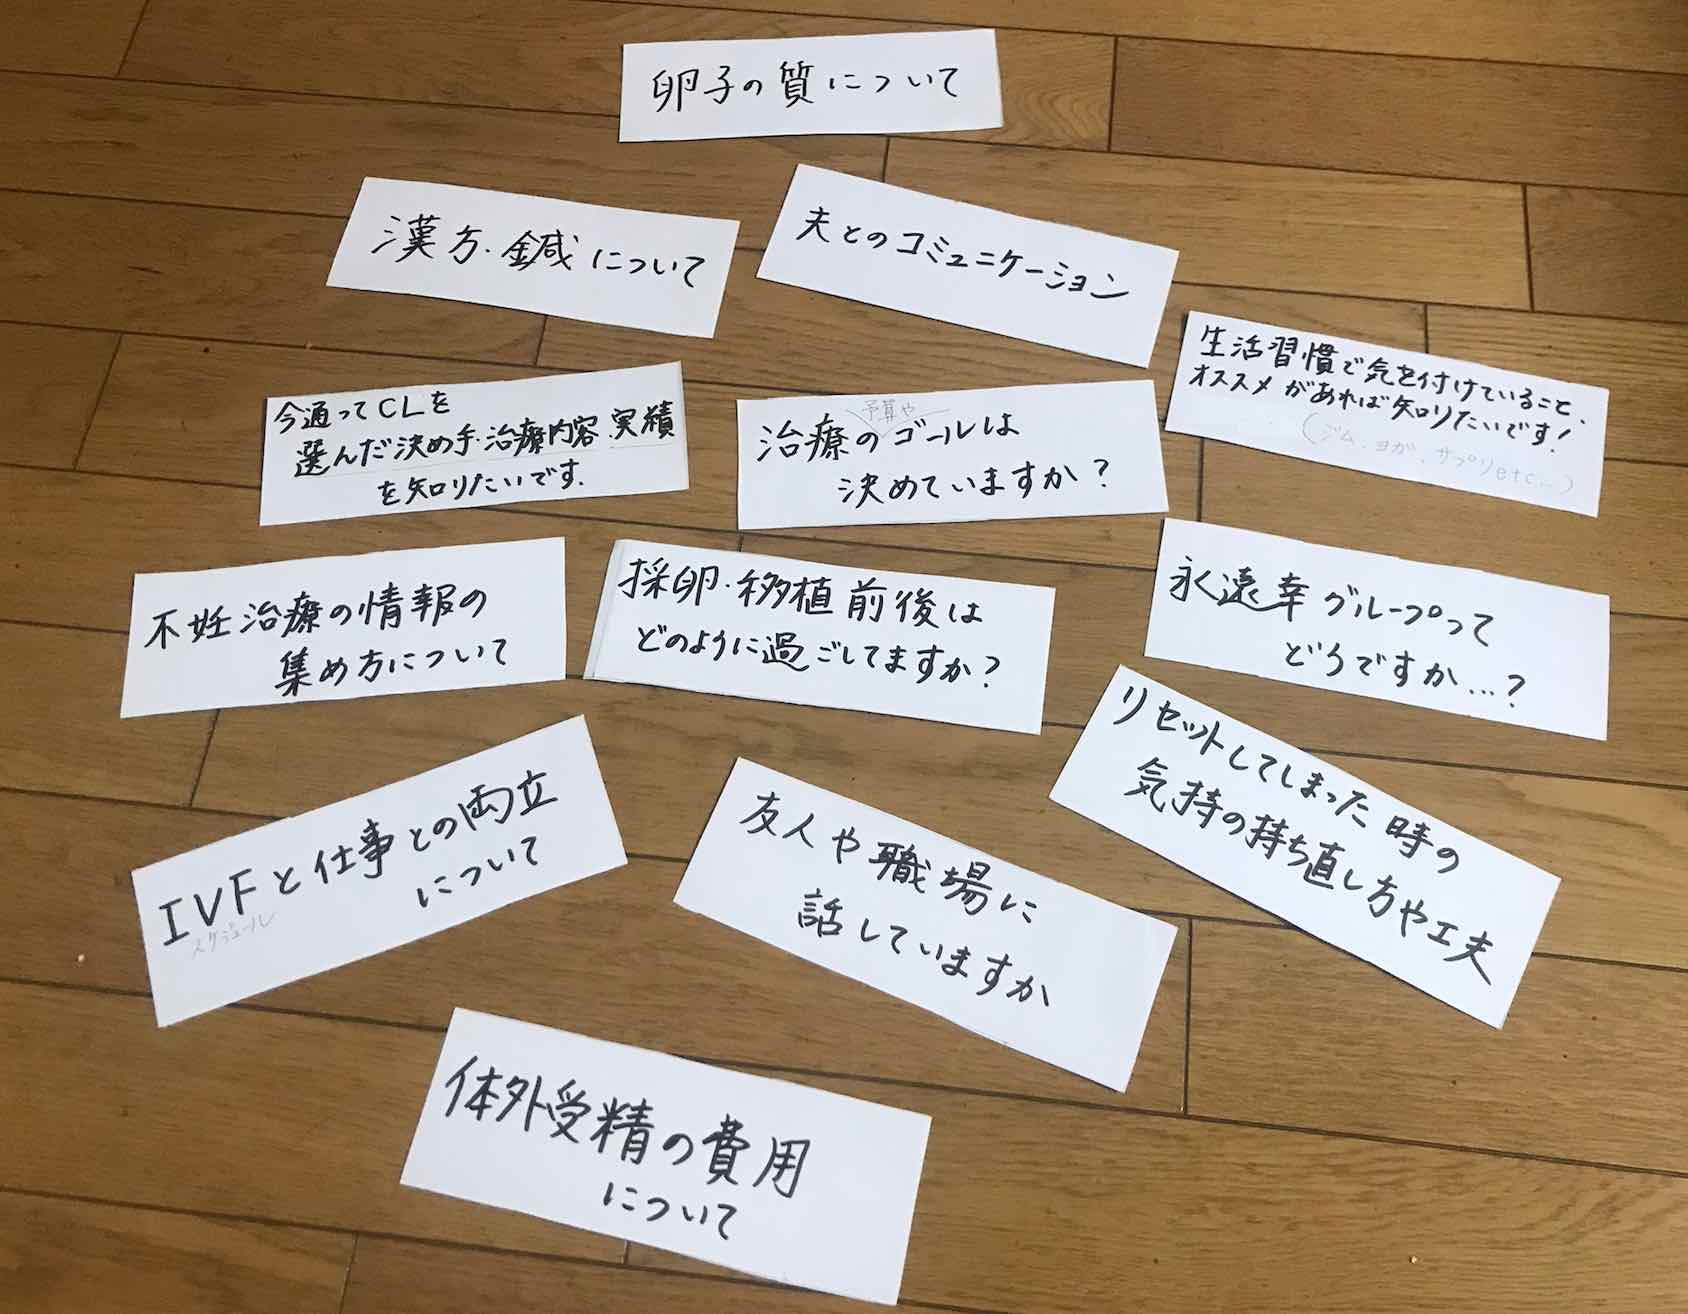 卵子の質について
漢方・鍼について
夫とのコミュニケーション
生活習慣で気を付けていること、
オススメがあれば知りたいです!
(ジム、ヨガ、サプリetc...)
今通ってCLを
選んだ決め手・治療内容・実績
を知りたいです.
予算や
治療のゴールは
決めていますか?
不妊治療の情報の
集め方について
採卵・移植前後は
どのように過ごしてますか?
永遠幸グループって
どうですか...?
リセットしてしまった時の
気持の持ち直し方や工夫
IVFと仕事との両立
スケジュール
について
友人や職場に
話していますか
体外受精の費用
について